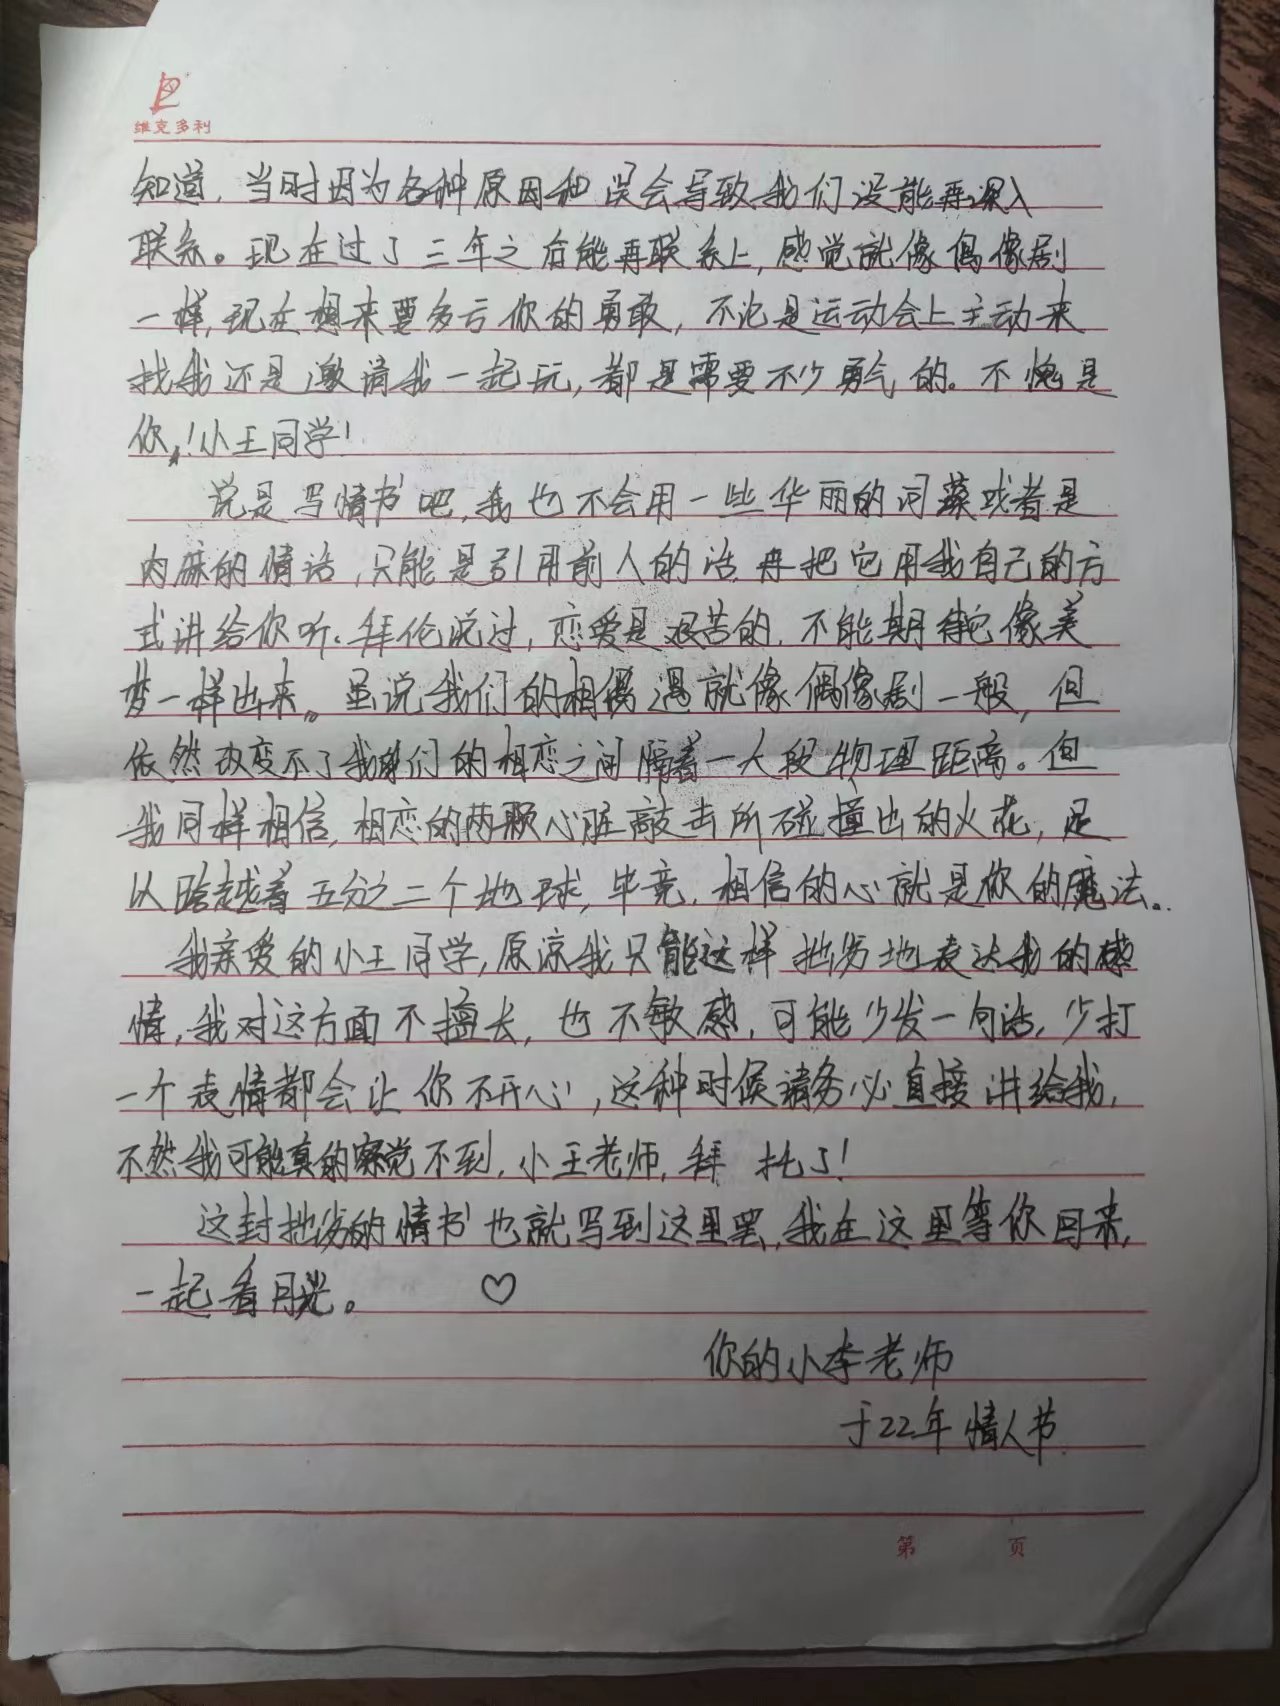 维克多利
知道,当时因为各种原因和误会导致我们没能再深入
联系。现在过了三年之后能再联系上,感觉就像偶像剧
一样,现在想来要多亏你的勇敢,不论是运动会上主动来
找我还是邀请我一起玩,都是需要不少勇气的。不愧是
你,!小王同学!
说是写情书吧,我也不会用一些华丽的词藻或者是
肉麻的情话,只能是引用前人的话再把它用我自己的方
式讲给你听.拜伦说过,恋爱是艰苦的,不能期待它像美
梦一样出来。虽说我们的相遇就像偶像剧一般,但
依然改变不了我们的相恋之间隔着一大段物理距离。但
我同样相信,相恋的两颗心脏敲击所碰撞出的火花,足
以跨越着五分之二个地球,毕竟,相信的心就是你的魔法。
我亲爱的小王同学,原谅我只能这样拙劣地表达我的感
情,我对这方面不擅长,也不敏感,可能少发一句话,少打
一个表情都会让你不开心,这种时候请务必直接讲给我,
不然我可能真的察觉不到,小王老师,拜托了!
这封拙劣的情书也就写到这里罢,我在这里等你回来,
一起看月光。 ♡
你的小李老师
于22年情人节.
第 页